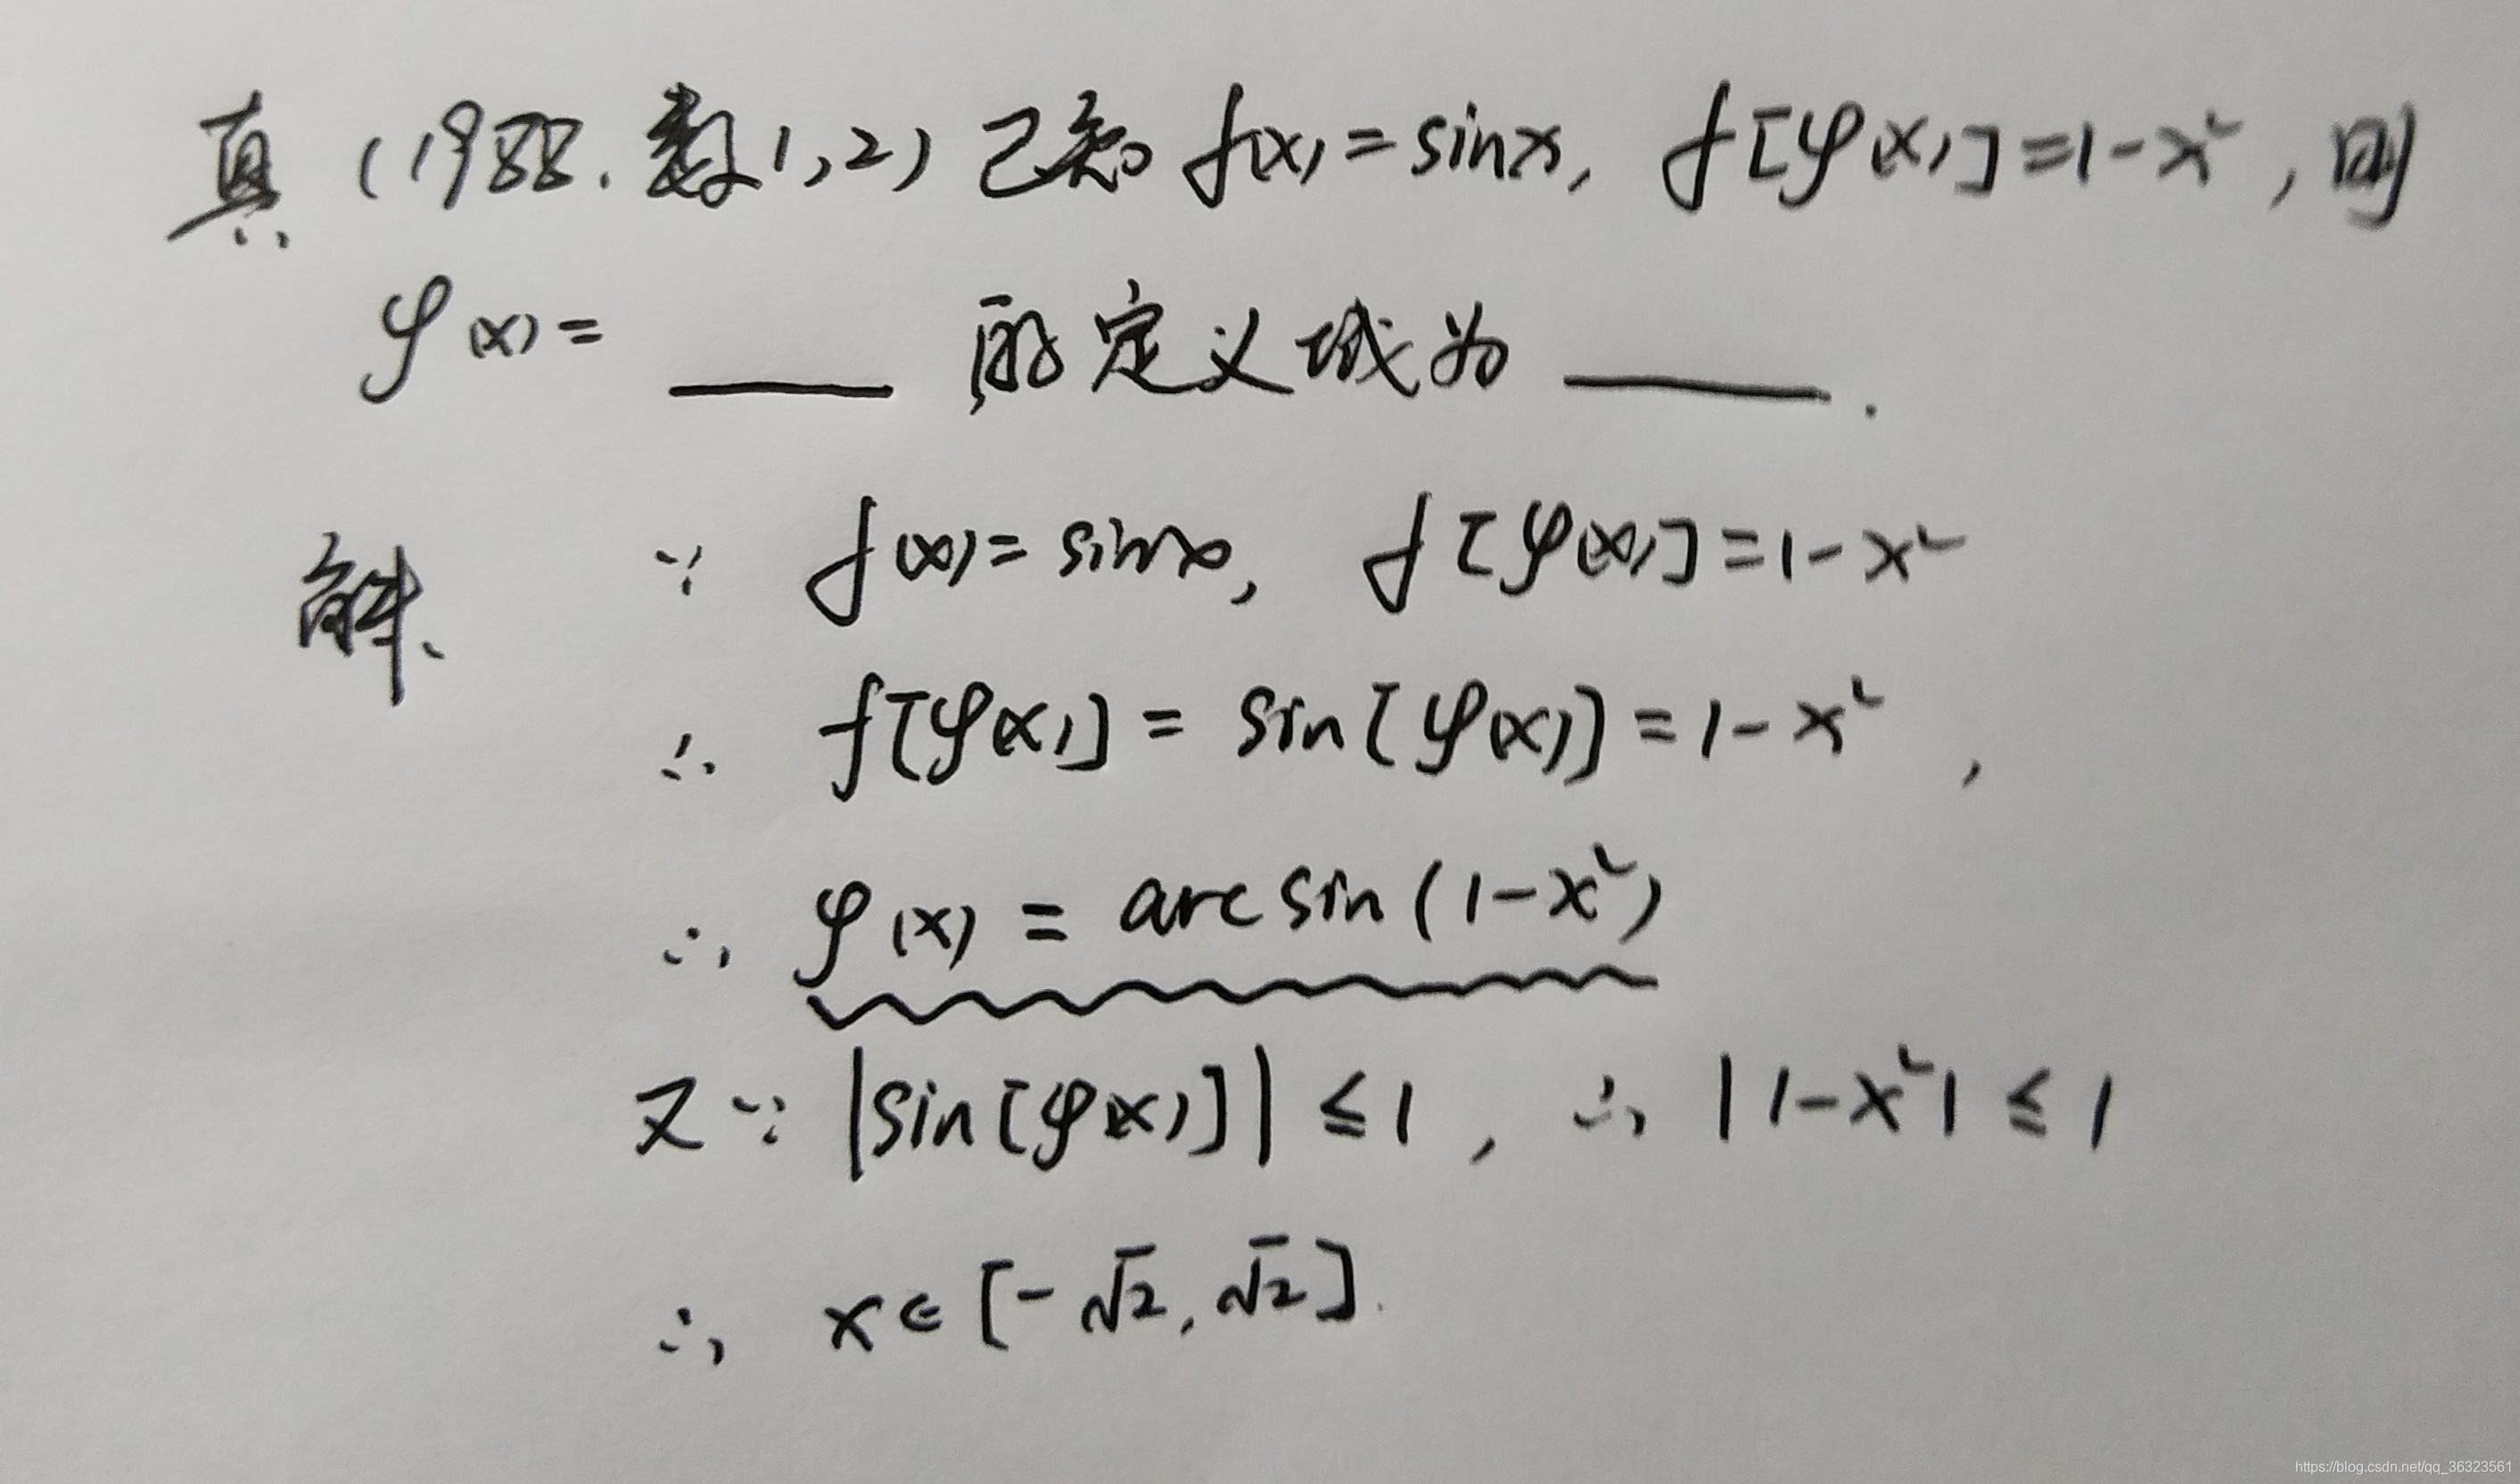 真(1988.数1,2)已知 f(x)=sinx, f[φ(x)]=1-x²,则
φ(x)= ____ 的定义域为 ____.
解、 ∵ f(x)=sinx, f[φ(x)]=1-x²
∴ f[φ(x)] = sin[φ(x)]=1-x² ,
∴ φ(x) = arcsin(1-x²)
又∵ |sin[φ(x)]| ≤1, ∴ |1-x²| ≤ 1
∴ x∈[-√2,√2].
https://blog.csdn.net/qq_36323561